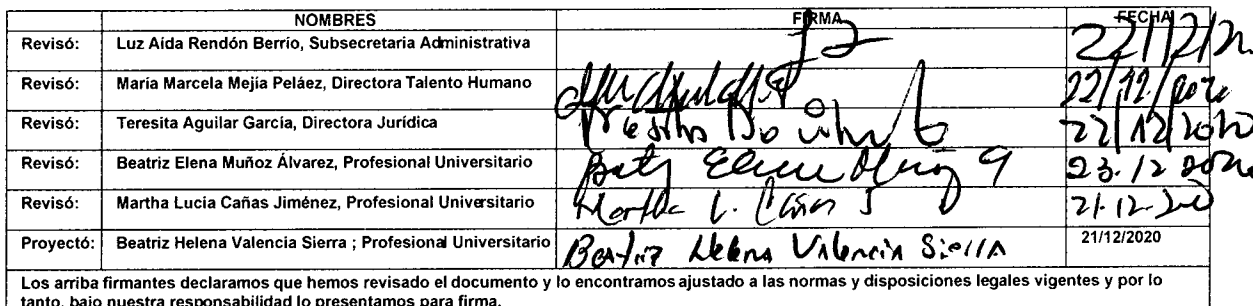 NOMBRES FIRMA FECHA
Revisó: Luz Aída Rendón Berrío, Subsecretaria Administrativa 22/12/20
Revisó: María Marcela Mejía Peláez, Directora Talento Humano 22/12/2020
Revisó: Teresita Aguilar García, Directora Jurídica 22/12/2020
Revisó: Beatriz Elena Muñoz Álvarez, Profesional Universitario 23.12 2020
Revisó: Martha Lucia Cañas Jiménez, Profesional Universitario Martha L. Cañas J 21-12-20
Proyectó: Beatriz Helena Valencia Sierra ; Profesional Universitario Beatriz Helena Valencia Sierra 21/12/2020
Los arriba firmantes declaramos que hemos revisado el documento y lo encontramos ajustado a las normas y disposiciones legales vigentes y por lo
tanto, bajo nuestra responsabilidad lo presentamos para firma.